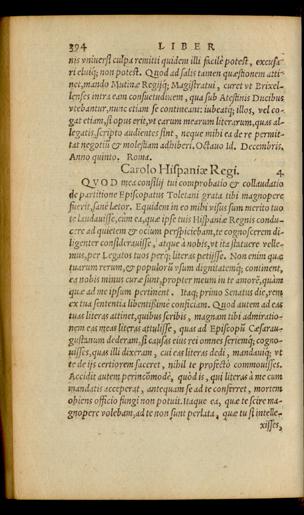 394 LIBER
nis vniuersi culpa remitti quidem illi facilè potest, excusa-
ri eiuiq; non potest. Quod ad salis tamen quæstionem atti-
net, mando Mutinæ Regijq; Magistratui, curet vt Brixel-
lenses intra eam consuetudinem, qua sub Atestinis Ducibus
vtebantur, nunc etiam se contineant: iubeatq; illos, vel co-
gat etiam, si opus erit, vt earum mearum literarum, quas al-
legatis, scripto audientes sint, neque mihi ea de re permit-
tat negotiũ & molestiam adhiberi. Octauo Id. Decembris,
Anno quinto. Roma.
Carolo Hispaniæ Regi. 4.
QVOD mea consilij tui comprobatio & collaudatio
de partitione Episcopatus Toletani grata tibi magnopere
fuerit, sanè lætor. Equidem in eo mihi visus sum merito tuo
te laudauisse, cùm ea, quæ ipse tuis Hispaniæ Regnis condu-
cere ad quietem & ocium perspiciebam, te cognoscerem di-
ligenter considerauisse, atque à nobis, vt ita statuere velle-
mus, per Legatos tuos perq; literas petijsse. Non enim quæ
tuarum rerum, & populorũ vsum dignitatemq; continent,
ea nobis minus curæ sunt, propter meum in te amorẽ, quàm
quæ ad me ipsum pertinent. Itaq; primo Senatus die, rem
ex tua sententia libentissimè conficiam. Quod autem ad eas
tuas literas attinet, quibus scribis, magnam tibi admiratio-
nem eas meas literas attulisse, quas ad Episcopũ Cæsarau-
gustanum dederam, si causas eius rei omnes seriemq; cogno-
uisses, quas illi dixeram, cui eas literas dedi, mandauiq; vt
te de ijs certiorem faceret, nihil te profectò commouisses.
Accidit autem perincõmodè, quòd is, qui literas à me cum
mandatis acceperat, antequam se ad te conferret, mortem
obiens officio fungi non potuit. Itaque ea, quæ te scire ma-
gnopere volebam, ad te non sunt perlata, quæ tu si intelle-
xisses,